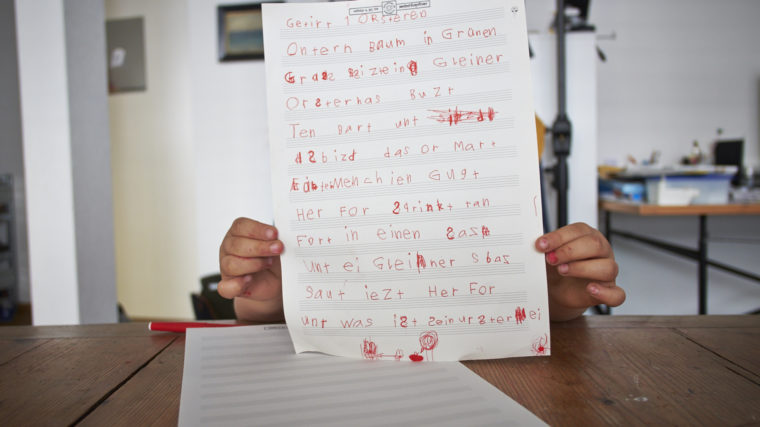 Getirr 1 Orsteren
Ontern Baum in Grünen
Gras sizt ein Gleiner
Orsterhas Buzt
Ten Bart unt
sbizd das or Mart
Eib Menchien Gugt
Her For sbrinkt tan
Fort in einen Gas
Unt ei Gleiner sbaz
Saut iezt Her For
unt was ist sein urster ei